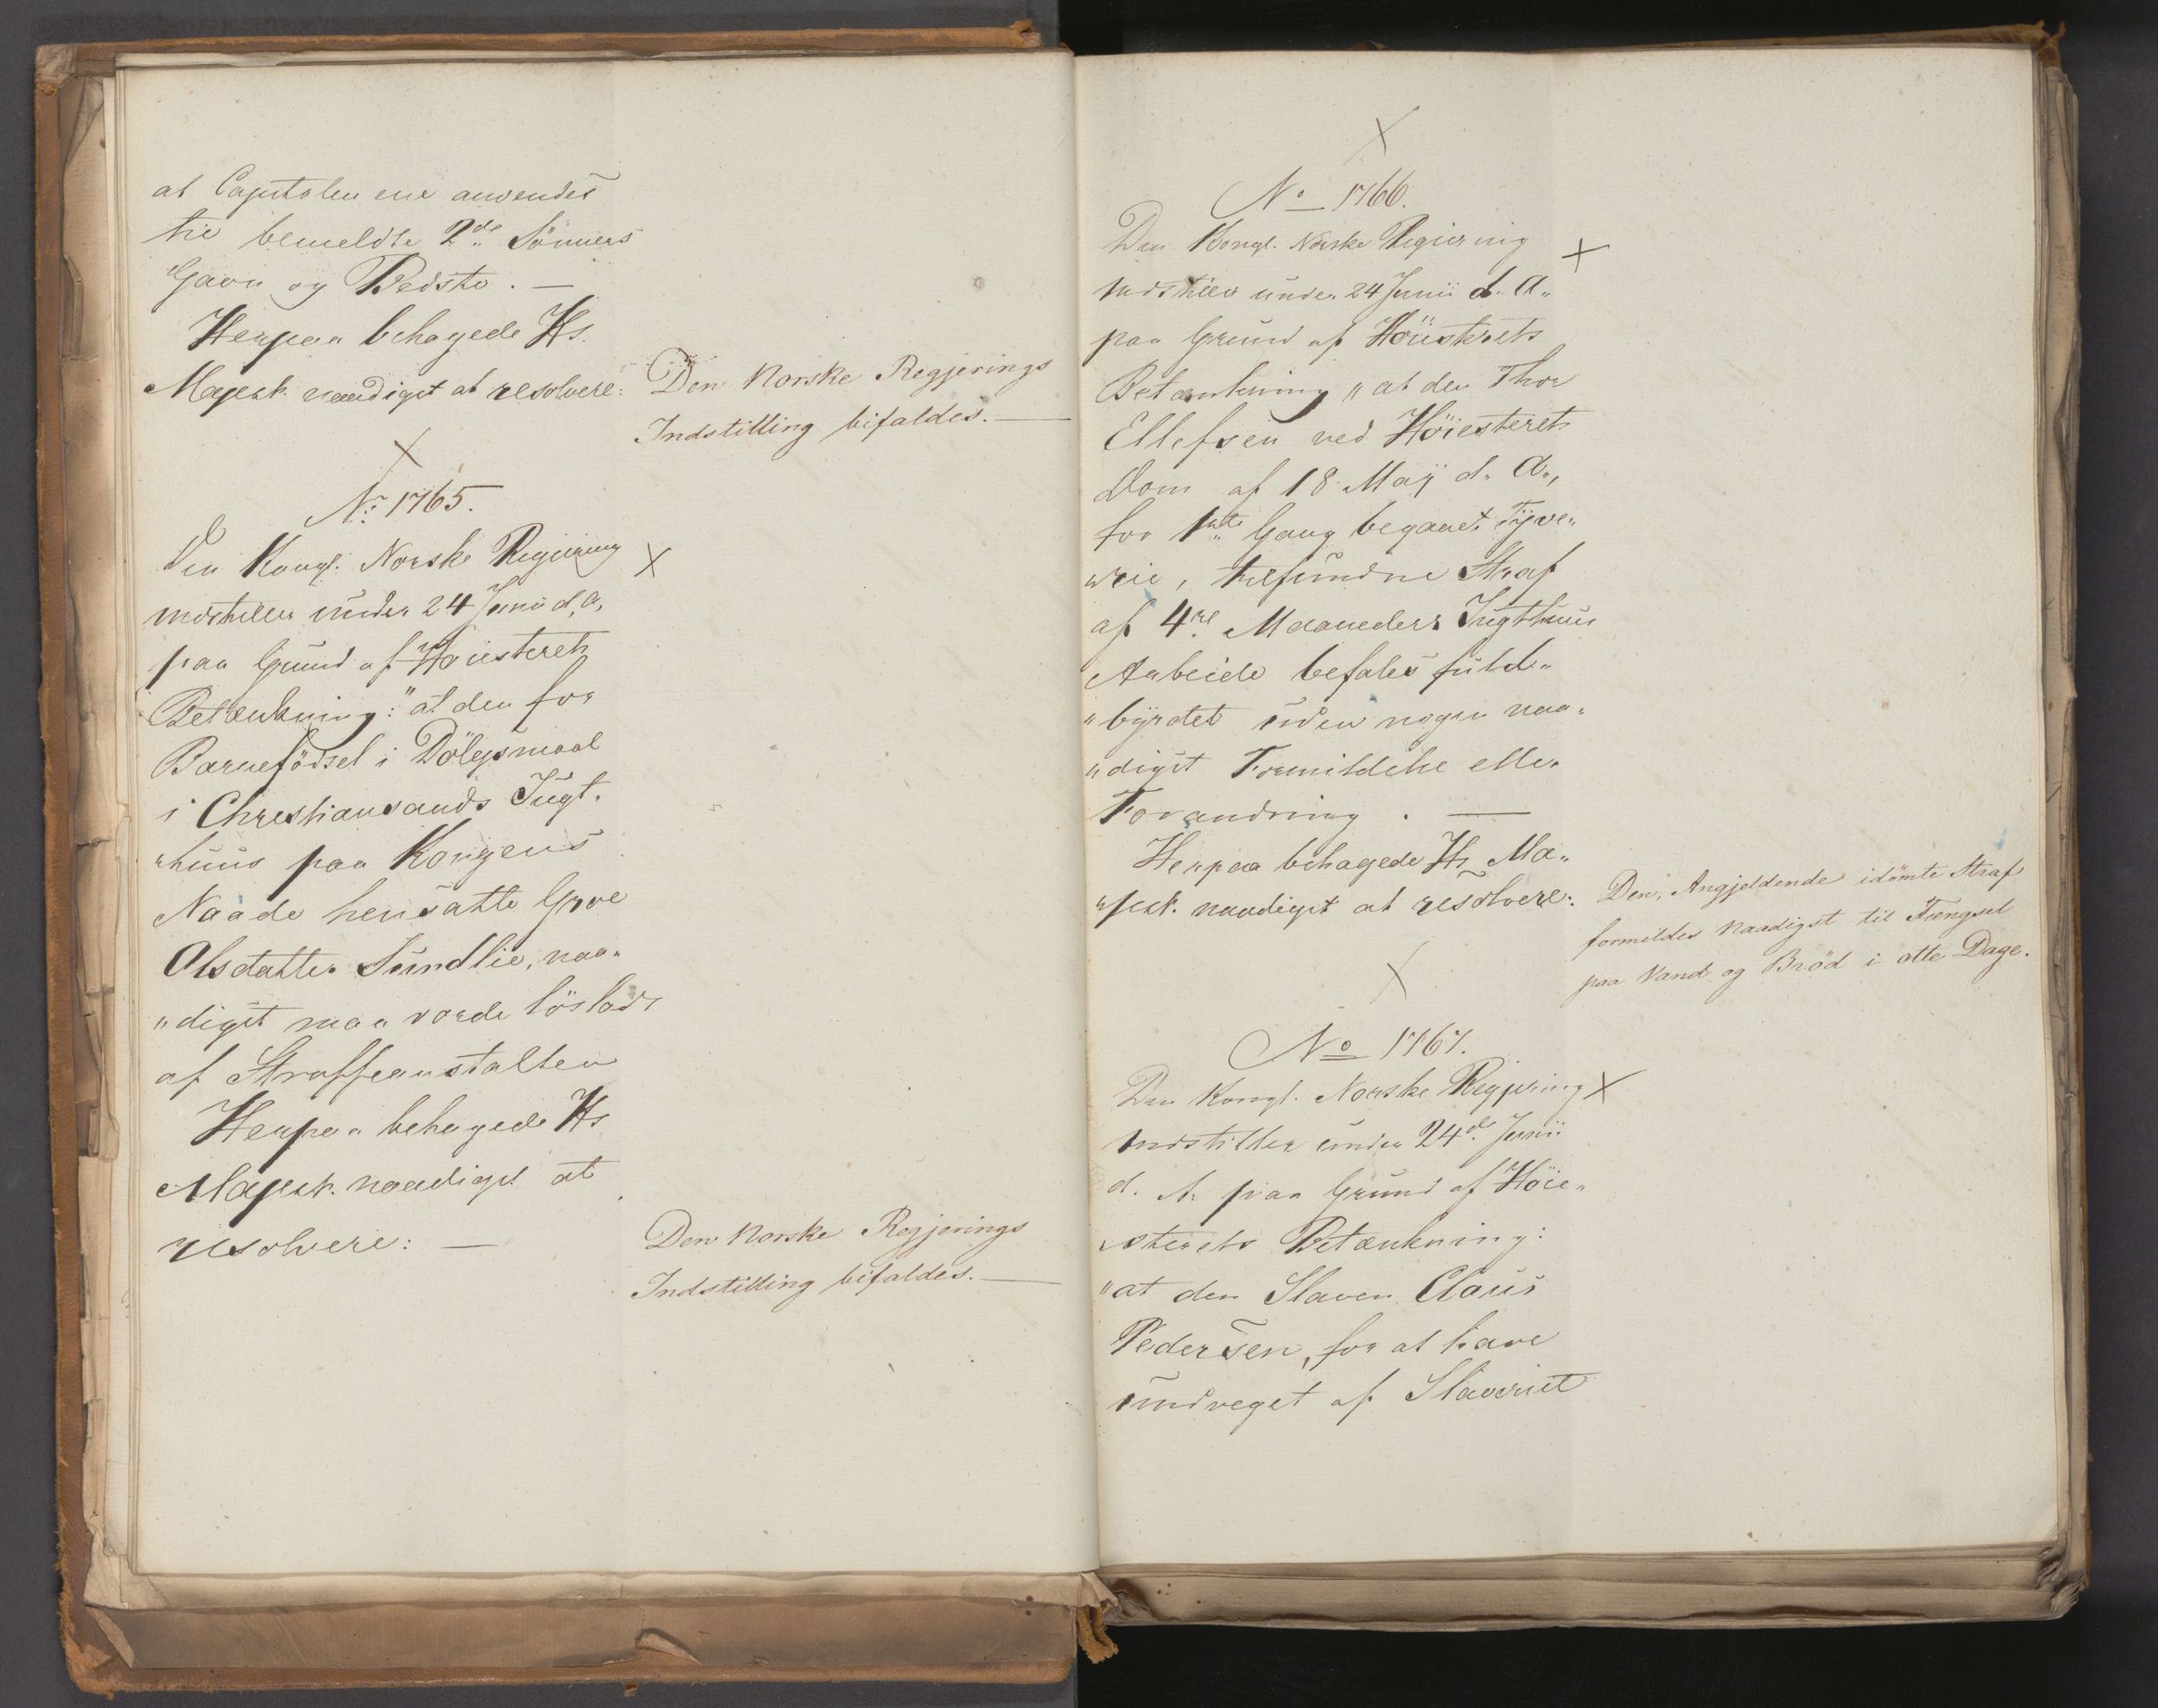 at Capitalen ene anvendes
til bemeldte 2de Sønners
Gavn og Bedste. —
Herpaa behagede Hs.
Majest. naadigst at resolvere:
Den Norske Regjerings
Indstilling bifaldes. —
No 1765.
Den Kongl. Norske Regiering
indstiller under 24 Junii d. a.
paa Grund af Høiesterets
Betænkning: "at den for
Barnefødsel i Dølgsmaal
i Christiansands Tugt-
"huus paa Kongens
Naade hensatte
Olsdatter Sundlie, naa-
"digst maa vorde løsladt
af Straffeanstalten
Herpaa behagede Hs
Majest. naadigst at
resolvere: —
Den Norske Regjerings
Indstilling bifaldes. —
No 1766.
Den Kongl. Norske Regiering
indstiller under 24 Junii d. A.
paa Grund af Høiesterets
Betænkning "at den Thor
Ellefsen ved Høiesterets
Dom af 18 Maij d. A.,
for 1ste Gang begaaet Tyve-
"rie, tilfundne Straf
af 4re Maaneders Tugthuus
Arbeide befales fuld-
"byrdet uden nogen naa-
"digst Formildelse eller
Forandring. —
Herpaa behagede Hs Ma-
"jest. naadigst at resolvere:
Den, Angjeldende idömte Straf,
formildes naadigst til Fængsel
paa Vand og Bröd i otte Dage.
No 1767.
Den Kongl. Norske Regjering
indstiller under 24de Junii
d. A. paa Grund af Høie-
"sterets Betænkning:
"at den Slaven Claus
Pedersen, for at have
undveget af Slaveriet